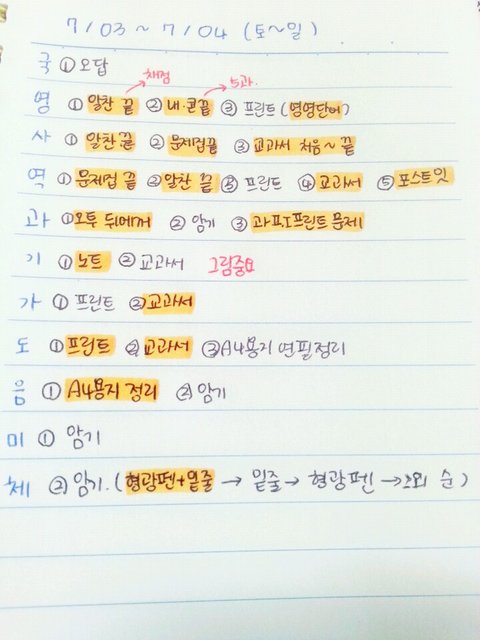 7/03 ~ 7/04 (토~일)
국 ① 오답
채점 5과.
영 ① 알찬 끝 ② 내·콘끝 ③ 프린트 (영영단어)
사 ① 알찬 끝 ② 문제집끝 ③ 교과서 처음~끝
역 ① 문제집 끝 ② 알찬 끝 ③ 프린트 ④ 교과서 ⑤ 포스트잇
과 ① 오투 뒤에꺼 ② 암기 ③ 과프프린트 문제
기 ① 노트 ② 교과서 그림중요
가 ① 프린트 ② 교과서
도 ① 프린트 ② 교과서 ③ A4용지 연필정리
음 ① A4용지 정리 ② 암기
미 ① 암기
체 ② 암기. (형광펜+밑줄 → 밑줄 → 형광펜 → 그외 순)